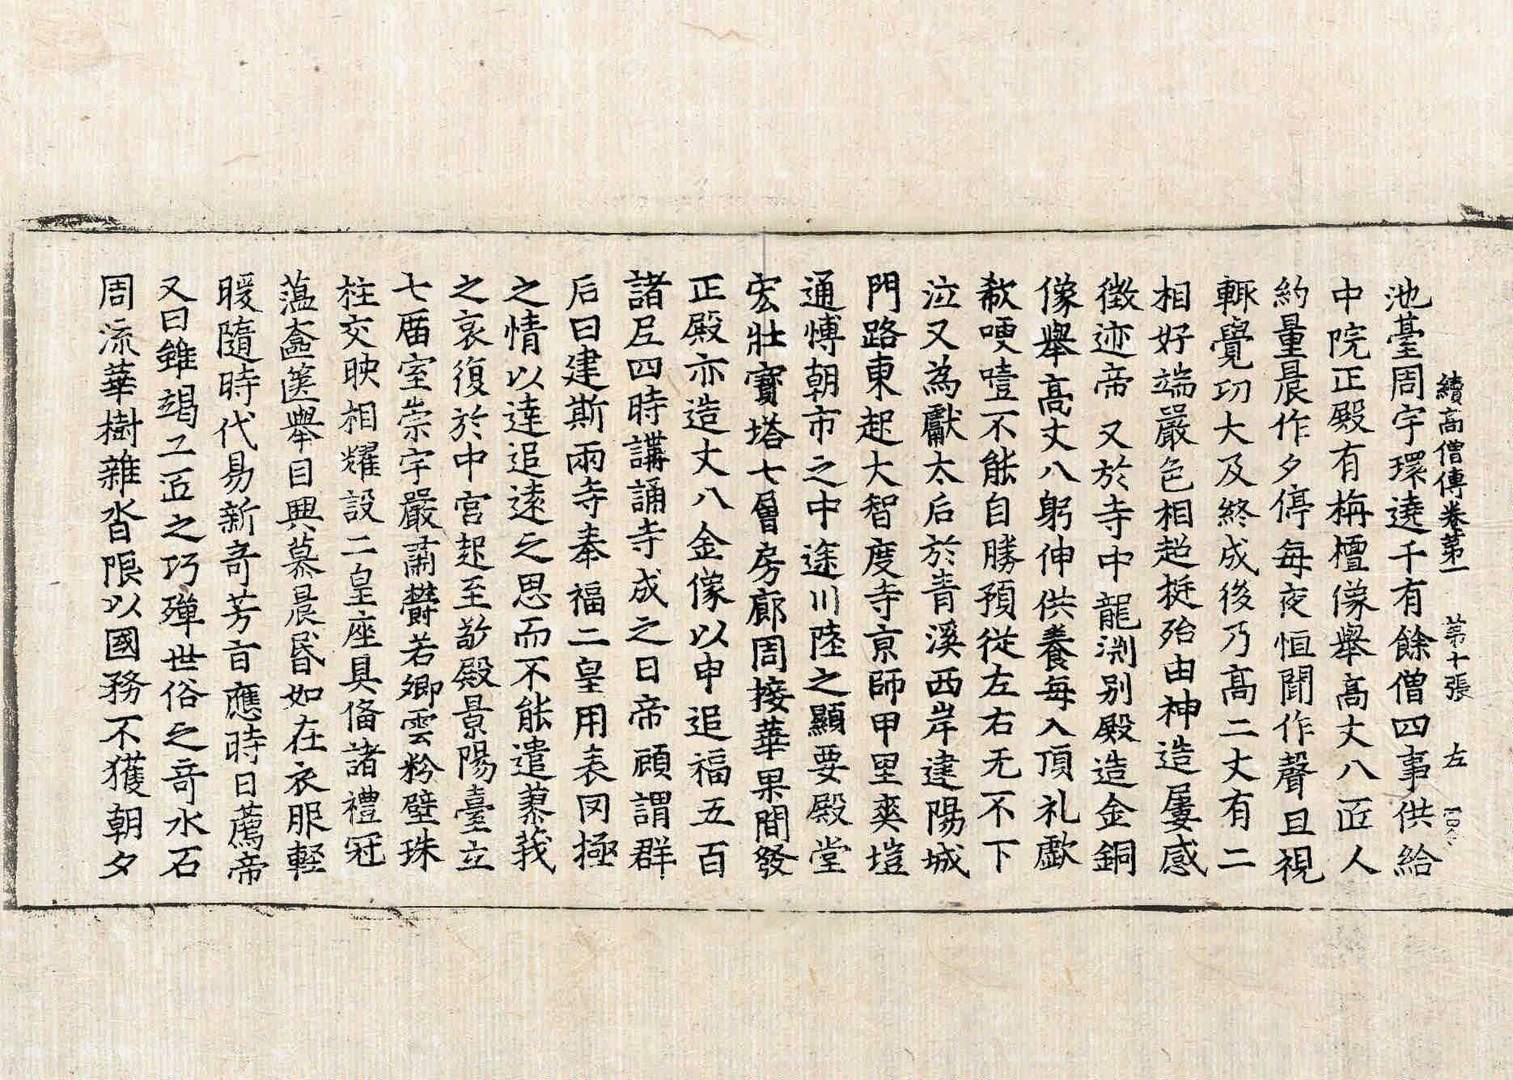 續高僧傳卷第一 第十張 左
池臺周宇環遶千有餘僧四事供給
中院正殿有栴檀像舉高丈八匠人
約量晨作夕停每夜恒聞作聲且視
輒覺功大及終成後乃高二丈有二
相好端嚴色相超挺殆由神造屢感
徵迹帝又於寺中龍淵別殿造金銅
像舉高丈八躬伸供養每入頂礼歔
欷哽噎不能自勝預從左右无不下
泣又為獻太后於青溪西岸建陽城
門路東起大智度寺京師甲里爽塏
通博朝市之中途川陸之顯要殿堂
宏壯寶塔七層房廊周接華果間發
正殿亦造丈八金像以申追福五百
諸尼四時講誦寺成之日帝顧謂群
后曰建斯兩寺奉福二皇用表罔極
之情以達追遠之思而不能遣蓼莪
之哀復於中宮起至敬殿景陽臺立
七廟室崇宇嚴肅欝若卿雲粉壁珠
柱交映相耀設二皇座具俻諸禮冠
蕰奩篋舉目興慕晨昏如在衣服輕
暖隨時代易新奇芳旨應時日薦帝
又曰雖竭工匠之巧殫世俗之奇水石
周流華樹雜沓限以國務不獲朝夕